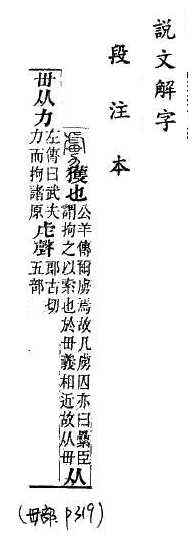 說文解字
段注本
虜獲也公羊傳爾虜焉故凡虜囚亦曰纍臣謂拘之以索也於毌義相近故从毌从
毌从力左傳曰武夫力而拘諸原虍聲郎古切五部
(毌部 P319)